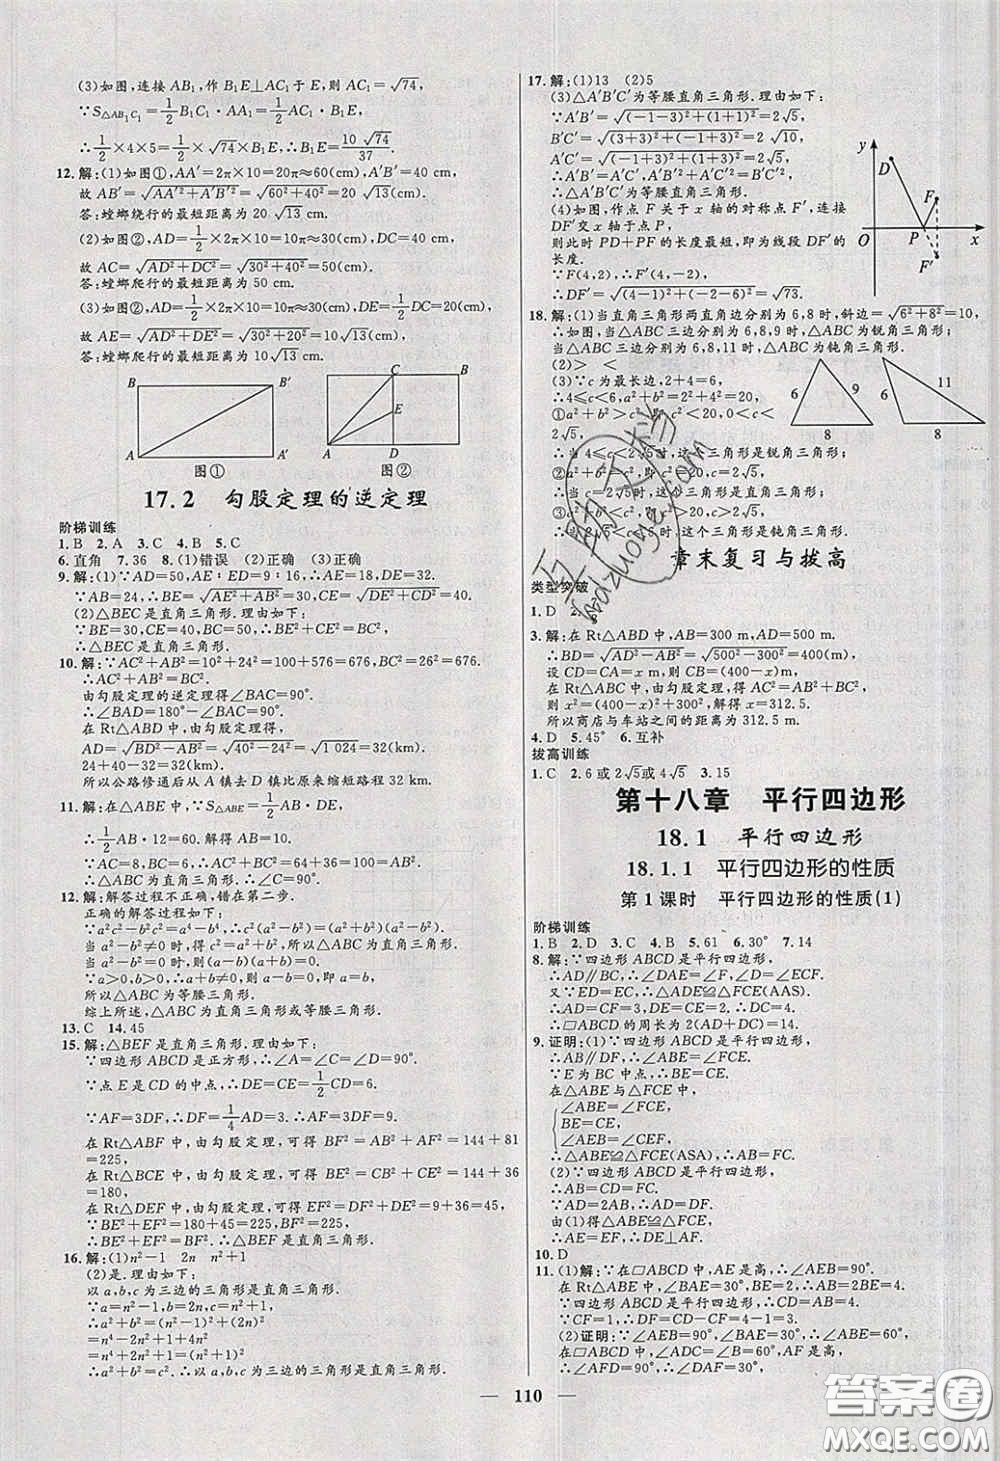 (3)如图,连接AB₁,作B₁E⊥AC₁于E,则AC₁=√74,
∵S△AB₁C₁=1/2B₁C₁·AA₁=1/2AC₁·B₁E,
∴1/2×4×5=1/2×√74×B₁E,∴B₁E=10√74/37.
12.解:(1)如图①,AA′=2π×10=20π≈60(cm),A′B′=40 cm,
故AB′=√AA′²+A′B′²=√60²+40²=20√13(cm).
答:蟑螂绕行的最短距离为20√13 cm.
(2)如图②,AD=1/2×2π×10=10π≈30(cm),DC=40(cm),
故AC=√AD²+DC²=√30²+40²=50(cm).
答:蟑螂爬行的最短距离为50 cm.
(3)如图②,AD=1/2×2π×10=10π≈30(cm),DE=1/2DC=20(cm),
故AE=√AD²+DE²=√30²+20²=10√13(cm).
答:蟑螂爬行的最短距离为10√13 cm.
B B′ A A′ 图①
C E A D 图②
17.2 勾股定理的逆定理
阶梯训练
1.B 2.A 3.C 4.B 5.C
6.直角 7.36 8.(1)错误 (2)正确 (3)正确
9.解:(1)∵AD=50,AE∶ED=9∶16,∴AE=18,DE=32.
∵AB=24,∴BE=√AE²+AB²=30,CE=√DE²+CD²=40.
(2)△BEC是直角三角形.理由如下:
∵BE=30,CE=40,BC=50,∴BE²+CE²=BC².
∴△BEC是直角三角形.
10.解:∵AC²+AB²=10²+24²=100+576=676,BC²=26²=676.
∴AC²+AB²=BC².
由勾股定理的逆定理得∠BAC=90°.
∴∠BAD=180°-∠BAC=90°.
在Rt△ABD中,由勾股定理得,
AD=√BD²-AB²=√40²-24²=√1 024=32(km).
所以公路修通后从A镇去D镇比原来缩短路程32 km.
11.解:在△ABE中,∵S△ABE=1/2AB·DE,
∴1/2AB·12=60.解得AB=10.
∵AC=8,BC=6,AB=10,∴AC²+BC²=8²+6²=10²=AB².
由勾股定理的逆定理得∠C=90°.
12.解:解答过程不正确,错在第二步.
正确的解答过程如下:
∵a²c²-b²c²=a⁴-b⁴,∴c²(a²-b²)=(a²+b²)(a²-b²).
当a²-b²≠0时,得c²=a²+b²,所以△ABC为直角三角形.
当a²-b²=0时,得(a-b)(a+b)=0.
∵a>0,b>0,∴a+b≠0,∴a-b=0,即a=b.
所以△ABC为等腰三角形.
综上所述,△ABC为等腰三角形或等腰直角三角形.
13.C 14.45
15.解:△BEF是直角三角形.理由如下:
∵四边形ABCD是正方形,∴∠A=∠C=∠D=90°.
∵点E是CD的中点,∴DE=CE=1/2CD=6.
∵AF=3DF,∴DF=1/4AD=3.∴AF=3DF=9.
在Rt△ABF中,由勾股定理,可得BF²=AB²+AF²=144+81
=225,
在Rt△BCE中,由勾股定理,可得BE²=CB²+CE²=144+36
=180,
在Rt△DEF中,由勾股定理,可得EF²=DF²+DE²=9+36=45,
∵BE²+EF²=180+45=225,BF²=225,∴BE²+EF²=BF².
∴△BEF是直角三角形.
16.解:(1)n²-1 2n n²+1
(2)是.理由如下:
以a,b,c为三边的三角形是直角三角形.
∵a=n²-1,b=2n,c=n²+1,
∴a²+b²=(n²-1)²+(2n)²
=n⁴-2n²+1+4n²
=n⁴+2n²+1=(n²+1)²=c².
∴a²+b²=c².∴以a,b,c为三边的三角形是直角三角形.
17.解:(1)13 (2)5
(3)△A′B′C′为等腰直角三角形.理由如下:
∵A′B′=√(-1-3)²+(1+1)²=2√5,
B′C′=√(3+3)²+(-1+3)²=2√10,
A′C′=√(-1+3)²+(1+3)²=2√5,
∴A′B′=A′C′,A′B′²+A′C′²=B′C′².
∴△A′B′C′为等腰直角三角形.
(4)如图,作点F关于x轴的对称点F′,连接
DF′交x轴于点P,
则此时PD+PF的长度最短,即为线段DF′的
长度.
∵F(4,2),∴F′(4,-2).
∴DF′=√(4-1)²+(-2-6)²=√73.
y D F O P x F′
18.解:(1)当直角三角形两直角边分别为6,8时,斜边=√6²+8²=10,
∴如图,当△ABC三边分别为6,8,9时,△ABC为锐角三角形;
当△ABC三边分别为6,8,11时,△ABC为钝角三角形.
(2)> <
(3)∵c为最长边,2+4=6,
∴4≤c<6,a²+b²=2²+4²=20.
①a²+b²>c²,即c²<20,0<c<
2√5,
∴当4≤c<2√5时,这个三角形是锐角三角形;
②a²+b²=c²,即c²=20,c=2√5,
∴当c=2√5时,这个三角形是直角三角形;
③a²+b²<c²,即c²>20,c>2√5,
∴当2√5<c<6时,这个三角形是钝角三角形.
6 9 8
6 11 8
章末复习与拔高
类型突破
1.D
3.解:在Rt△ABD中,AB=300 m,AD=500 m.
∴BD=√AD²-AB²=√500²-300²=400(m).
设CD=CA=x(m),则BC=(400-x)(m).
在Rt△ABC中,根据勾股定理,得AC²=AB²+BC²,
则x²=(400-x)²+300²,解得x=312.5.
所以商店与车站之间的距离为312.5 m.
4.D 5.45° 6.互补
拔高训练
1.C 2.6或2√5或4√5 3.15
第十八章 平行四边形
18.1 平行四边形
18.1.1 平行四边形的性质
第1课时 平行四边形的性质(1)
阶梯训练
1.B 2.D 3.C 4.B 5.61 6.30° 7.14
8.解:∵四边形ABCD是平行四边形,
∴AD∥BC,∴∠DAE=∠F,∠D=∠ECF.
又∵ED=EC,∴△ADE≌△FCE(AAS).
∴AD=CF=2,DE=CE=3,∴DC=5.
∴□ABCD的周长为2(AD+DC)=14.
9.证明:(1)∵四边形ABCD是平行四边形,
∴AB∥DF,∴∠ABE=∠FCE.
∵E为BC中点,∴BE=CE.
在△ABE与△FCE中,
∠ABE=∠FCE,
BE=CE,
∠AEB=∠CEF,
∴△ABE≌△FCE(ASA).
(2)∵四边形ABCD是平行四边形,
∴AB=CD=FC.
∵AD=2AB,∴AD=DF.
由(1)得△ABE≌△FCE,
∴AE=EF,∴DE⊥AF.
10.D
11.(1)解:∵在□ABCD中,AE是高,∴∠AEB=90°.
在Rt△ABE中,∵∠BAE=30°,BE=2,∴AB=4.
∵四边形ABCD是平行四边形,∴CD=AB=4.
∵CF=1,∴DF=CD-CF=4-1=3.
(2)证明:∵∠AEB=90°,∠BAE=30°,∴∠B=60°,
在□ABCD中,∠D=∠B=60°,∠C=∠BAD=120°,
∴∠AFD=90°,∴∠DAF=30°,
110
答案圈
MXQE.COM